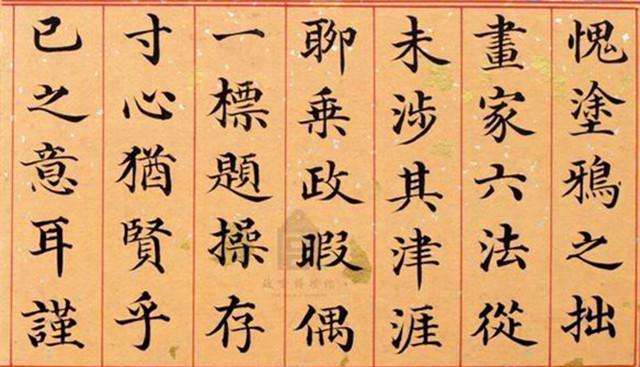 愧塗鴉之拙
畫家六法從
未涉其津涯
聊乗政暇偶
一標題操存
寸心猶賢乎
已之意耳謹